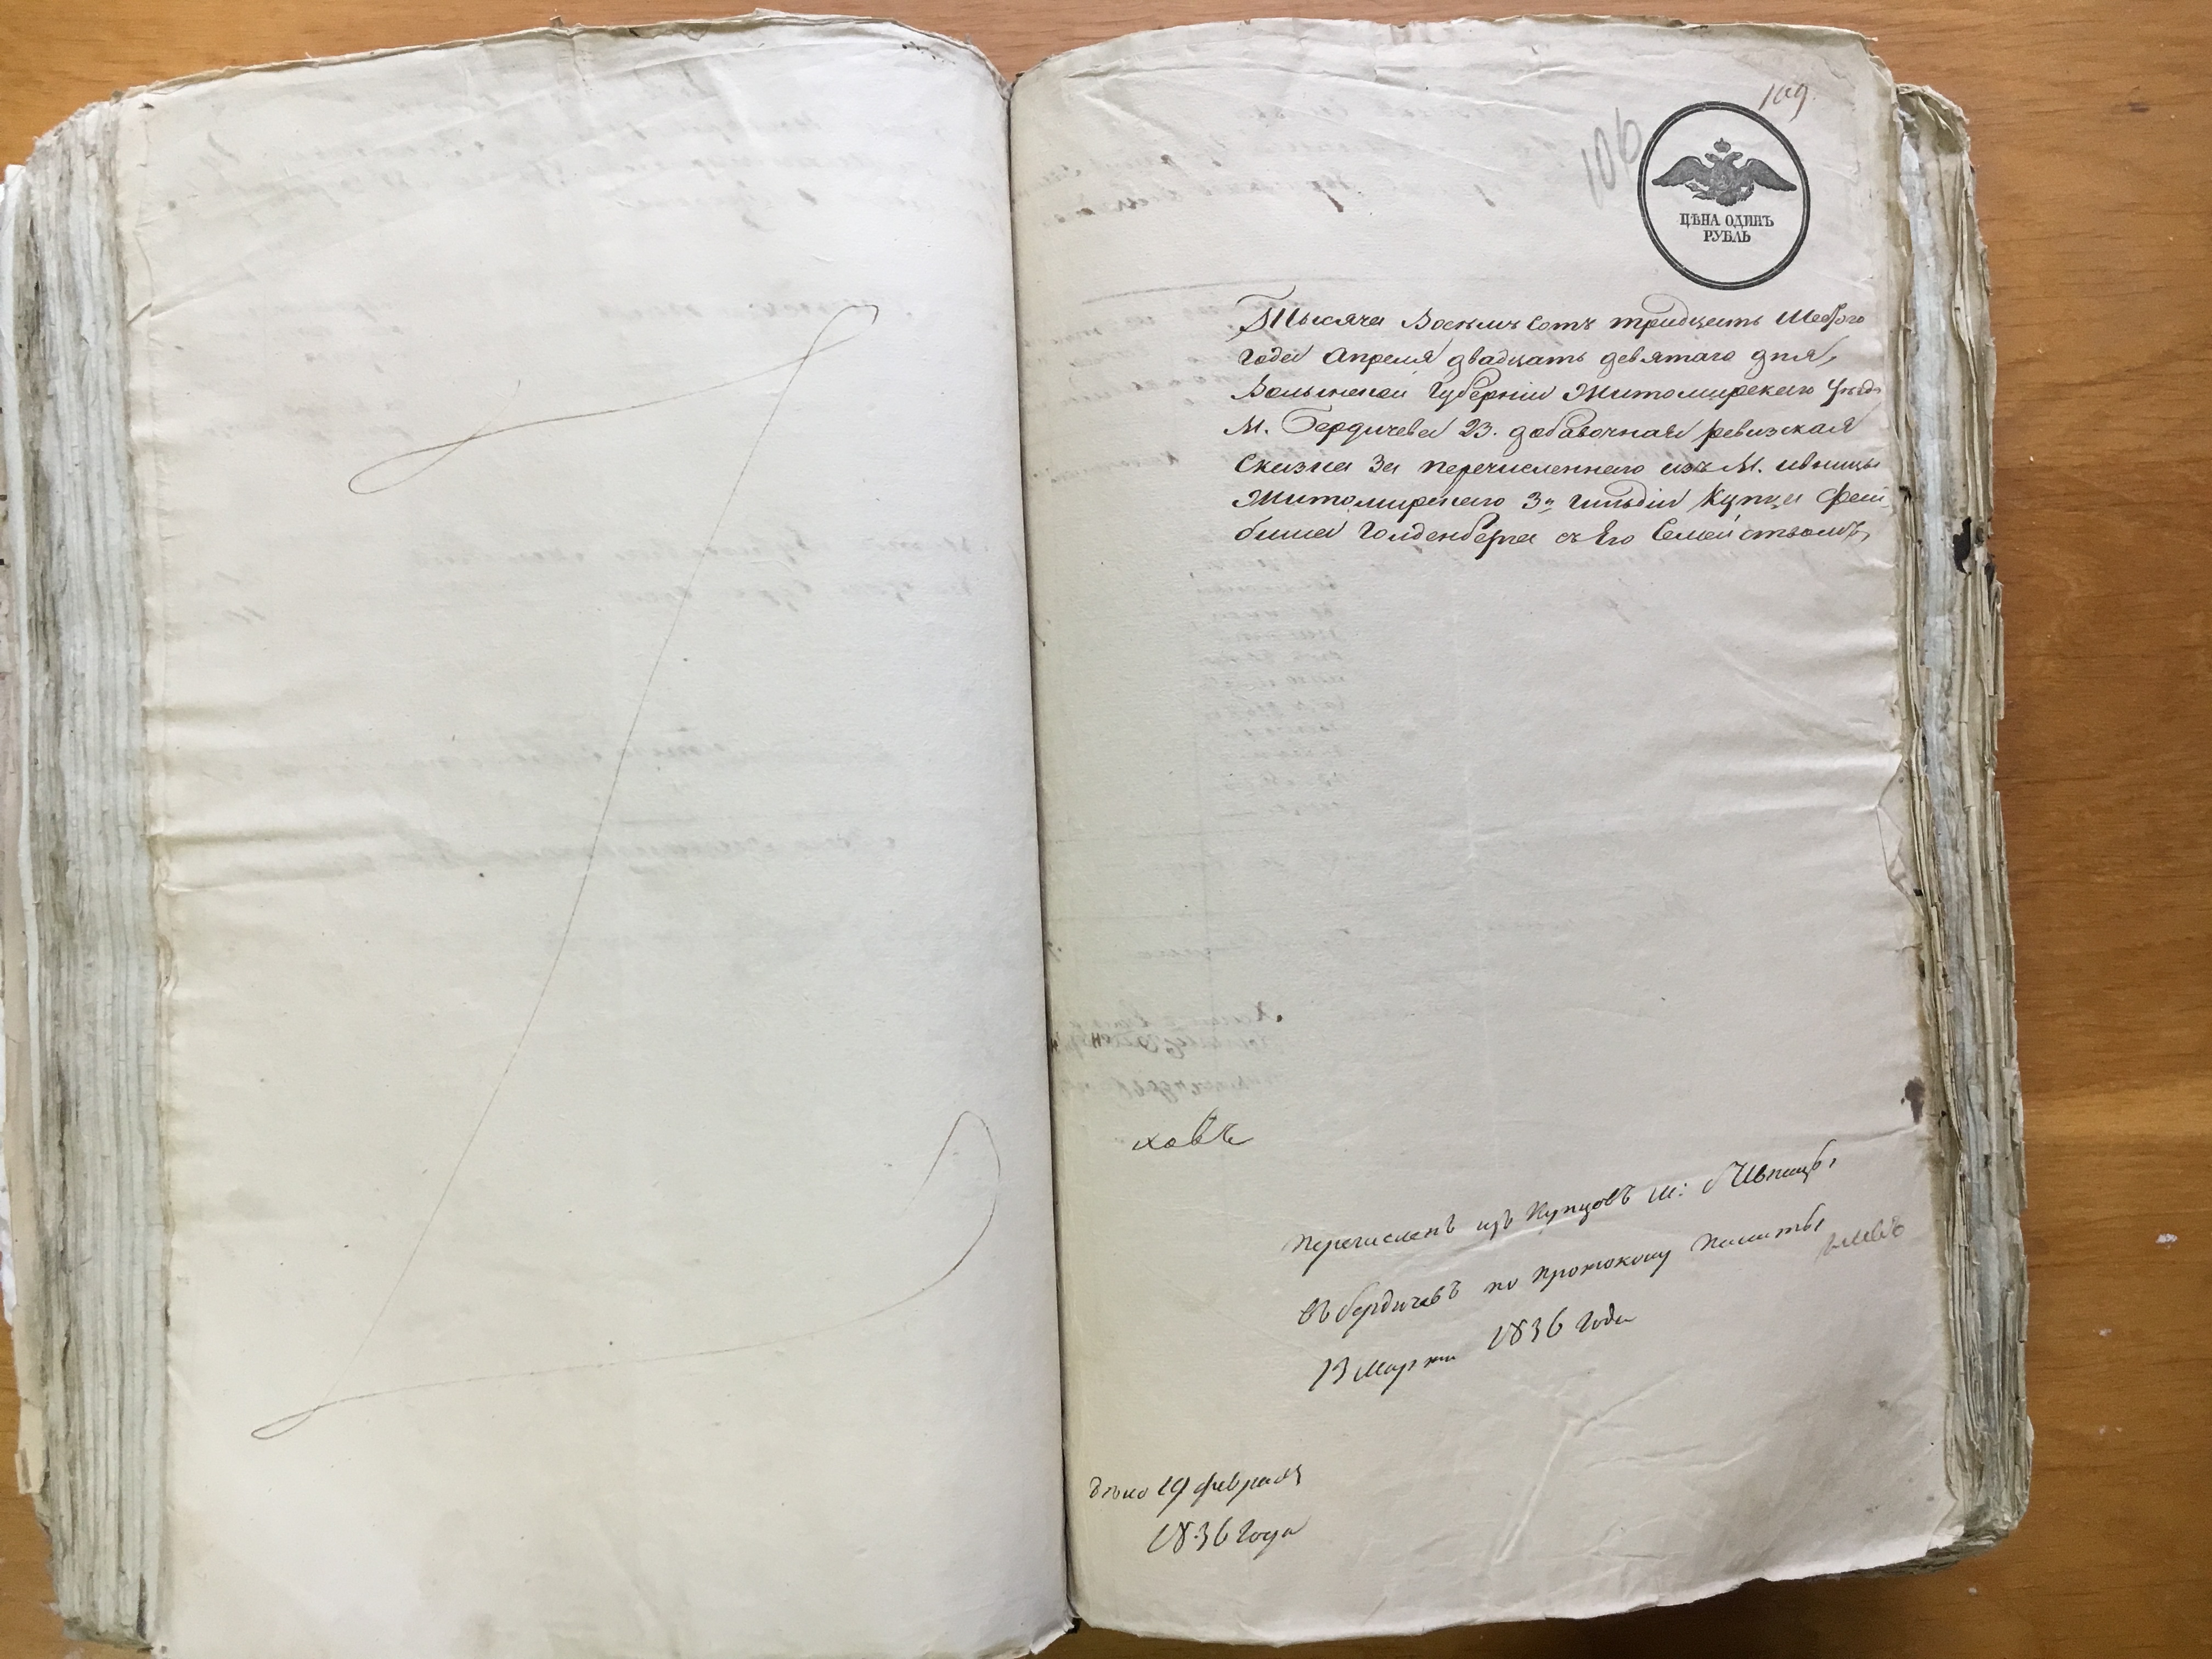 109.
106
ЦѢНА ОДИНЪ
РУБЛЬ
Тысяча Восемъ Сотъ тридцать Шестого
года Апреля двадцать девятаго дня,
Волынской Губерніи Житомирскаго Уѣзд
М. Бердичева 23. добавочная ревизская
Сказка За перечисленнаго изъ М. ивницы
Житомирскаго 3й гильдіи Купца Фей
биша Голденберга съ Его Семействомъ,
ховъ
перечисленъ изъ Купцовъ м: Ивницы
въ бердичевъ по протоколу палаты
13 марта 1836 года
19 февраля
1836 года